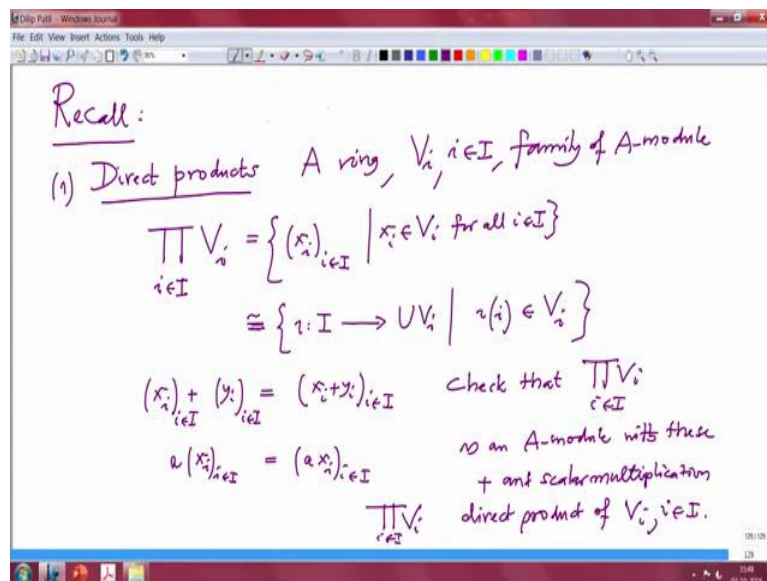 Dilip Patil - Windows Journal
File Edit View Insert Actions Tools Help
Recall:
(1) Direct products A ring, V_i, i∈I, family of A-module
∏_{i∈I} V_i = { (x_i)_{i∈I} | x_i ∈ V_i for all i∈I }
≅ { r: I ⟶ ∪V_i | r(i) ∈ V_i }
(x_i)_{i∈I} + (y_i)_{i∈I} = (x_i+y_i)_{i∈I} Check that ∏_{i∈I} V_i
a(x_i)_{i∈I} = (a x_i)_{i∈I} is an A-module with these
+ and scalar multiplication
∏_{i∈I} V_i direct product of V_i, i∈I.
129/129
129
15:48